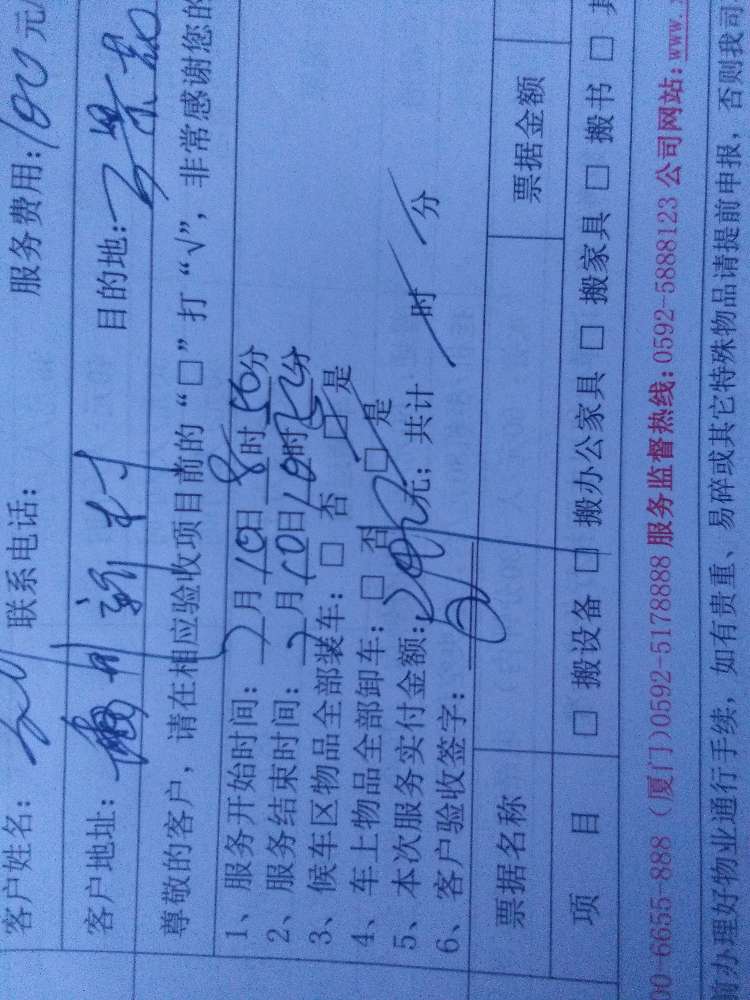 客户姓名： 联系电话： 服务费用：180元/
客户地址： 新村 目的地：
尊敬的客户，请在相应验收项目前的“□”打“√”，非常感谢您的
1、服务开始时间： 月10日8时50分
2、服务结束时间： 月10日10时 分
3、候车区物品全部装车：□ 否 □ 是
4、车上物品全部卸车：□ 否 □ 是
5、本次服务实付金额： 元；共计 时 分
6、客户验收签字：
票据名称 票据金额
项 目 □ 搬设备 □ 搬办公家具 □ 搬家具 □ 搬书 □ 其
00-6655-888（厦门）0592-5178888 服务监督热线：0592-5888123 公司网站：www.
前办理好物业通行手续，如有贵重、易碎或其它特殊物品请提前申报，否则我司